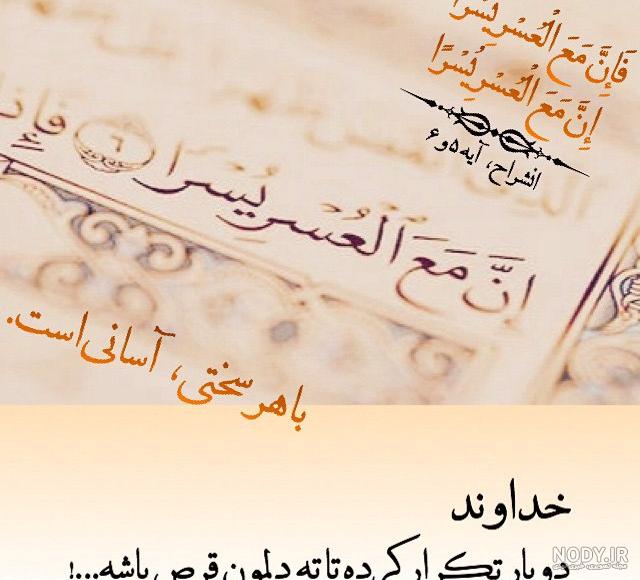 فَإِنَّ مَعَ الْعُسْرِ يُسْرًا
إِنَّ مَعَ الْعُسْرِ يُسْرًا
انشراح، آیه ۵ و ۶
إِنَّ مَعَ الْعُسْرِ يُسْرًا ٦ فَإِذَا
با هر سختی، آسانی است.
خداوند
دو بار تکرار کرده تا ته دلمون قرص باشه...!
NODY.IR